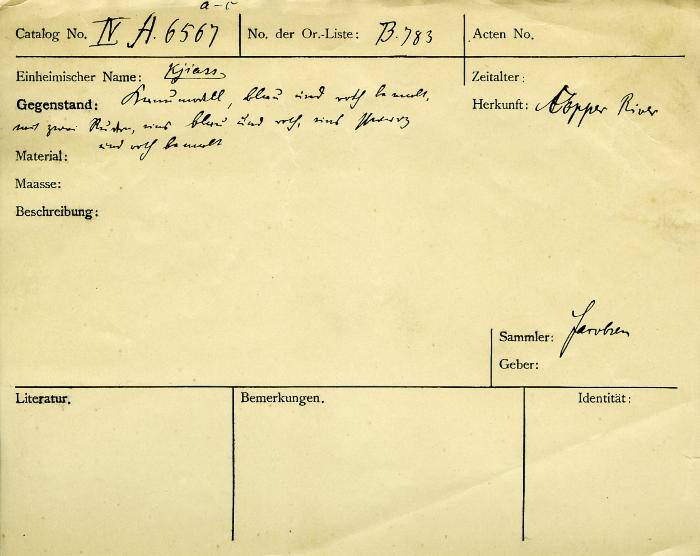 a-c
Catalog No. IV A. 6567 No. der Or.-Liste: B. 783 Acten No.
Einheimischer Name: Kjiass Zeitalter:
Gegenstand: Kanumodell, blau und roth bemalt, Herkunft: Copper River
mit zwei Rudern, eins blau und roth, eins schwarz
und roth bemalt
Material:
Maasse:
Beschreibung:
Sammler: Jacobsen
Geber:
Literatur. Bemerkungen. Identität: